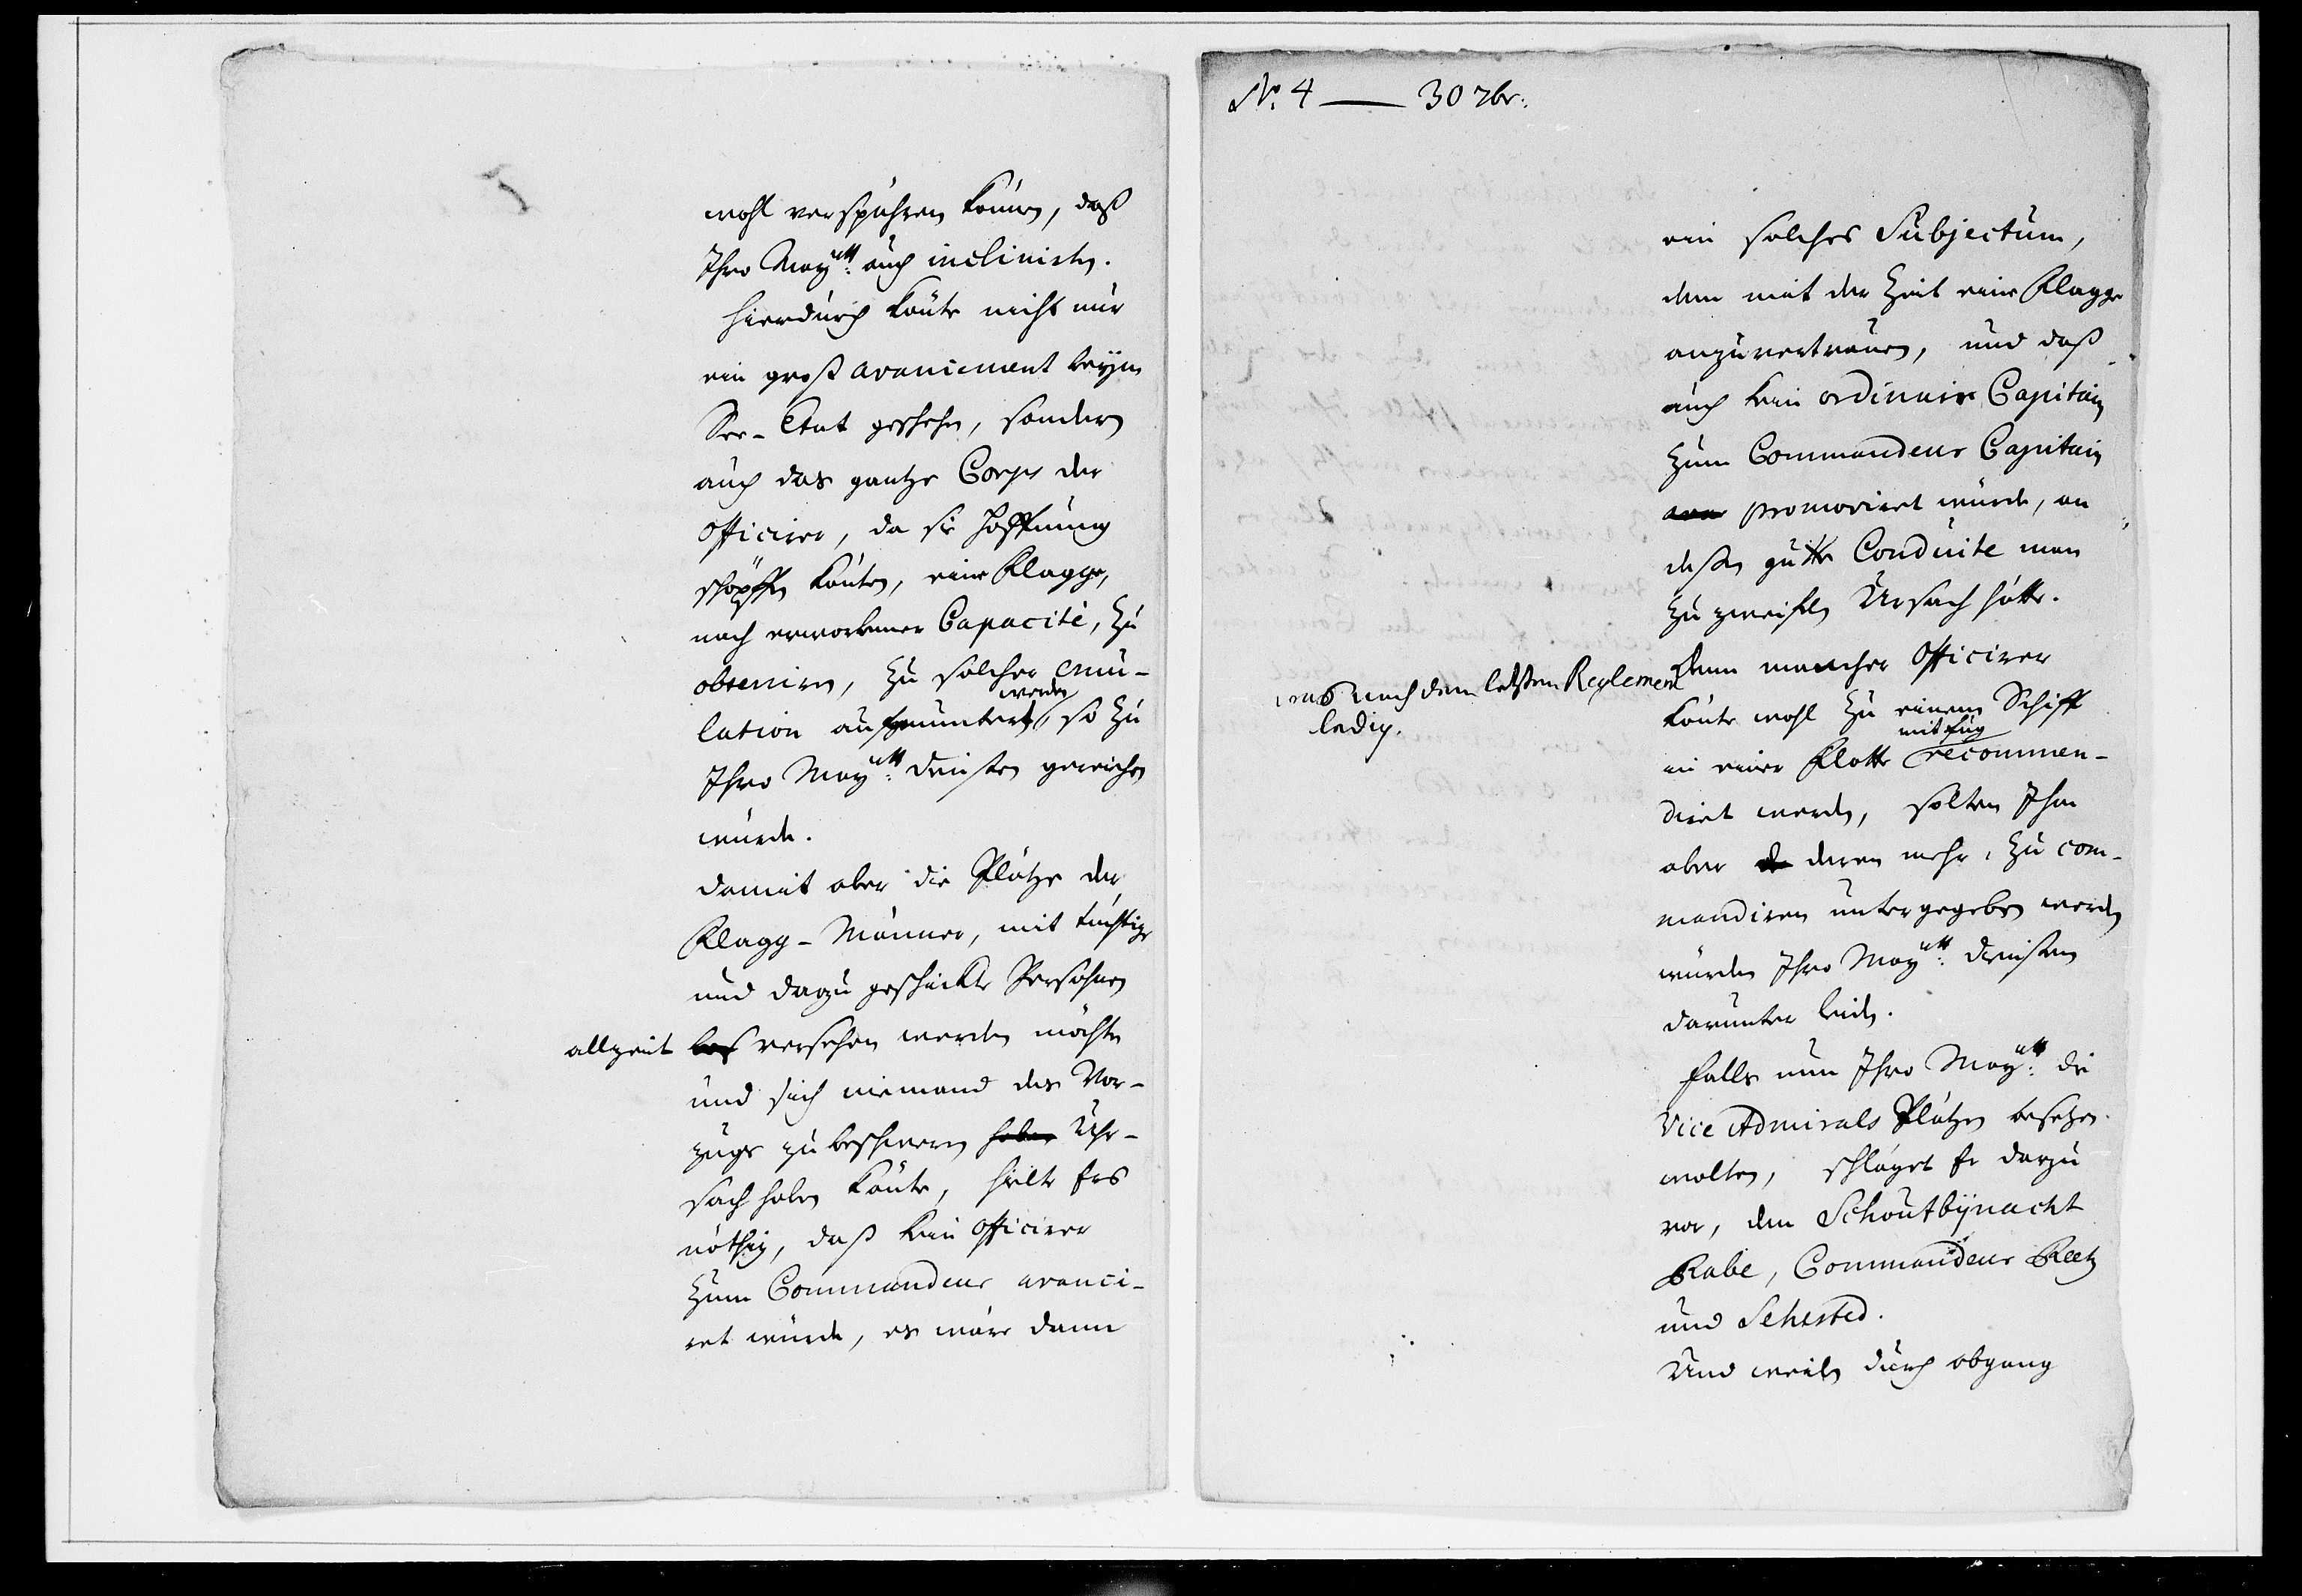 wohl verspühren können, daß
Ihro Mayᵗᵗ: auch inclinirten.
Hierdurch könte nicht nur
ein groß avancement beym
See-Etat geschehen, sondern
auch das gantze Corps der
Officirer, da sie Hoffnung
schöpffen könten, eine Flagge,
nach erworbener Capacité, zu
obteniren, zu solcher emu-
lation aufgemuntert werden, so zu
Ihro Mayᵗᵗ: Diensten gereichen
würde.
Damit aber die Plätze der
Flagg-Männer, mit tüchtige
und dazu geschickte Persohnen
allzeit versehen werden möchte
und sich niemand des Vor-
zugs zu beschweren haben Uhr-
sach haben könte, hielte Er es
nöthig, daß kein Officirer
zum Commandeur avanci-
ret würde, es wäre dann
No. 4 — 30 7br:
ein solches Subjectum,
dem mit der Zeit eine Flagge
anzuvertrauen, und daß
auch kein ordinaire Capitain
zum Commandeur Capitain
promoviret würde, an
deßen gute Conduite man
zu zweifeln Ursach hätte.
Denn mancher Officirer
könte wohl zu einem Schiff
in einer Flotte mit fug recommen-
diret werden, solten Ihm
aber deren mehr, zu com-
mandiren untergegeben werden
würden Ihro Mayᵗᵗ: Diensten
darunter leiden.
Falls nun Ihro Mayᵗᵗ: die
Vice Admirals Plätze besetzen
wolten, schläget Er darzu
vor, den Schoutbynacht
Rabe, Commandeur Reetz
und Sehested.
Und weilen durch abgang
was nach dem letzten Reglement
ledig.